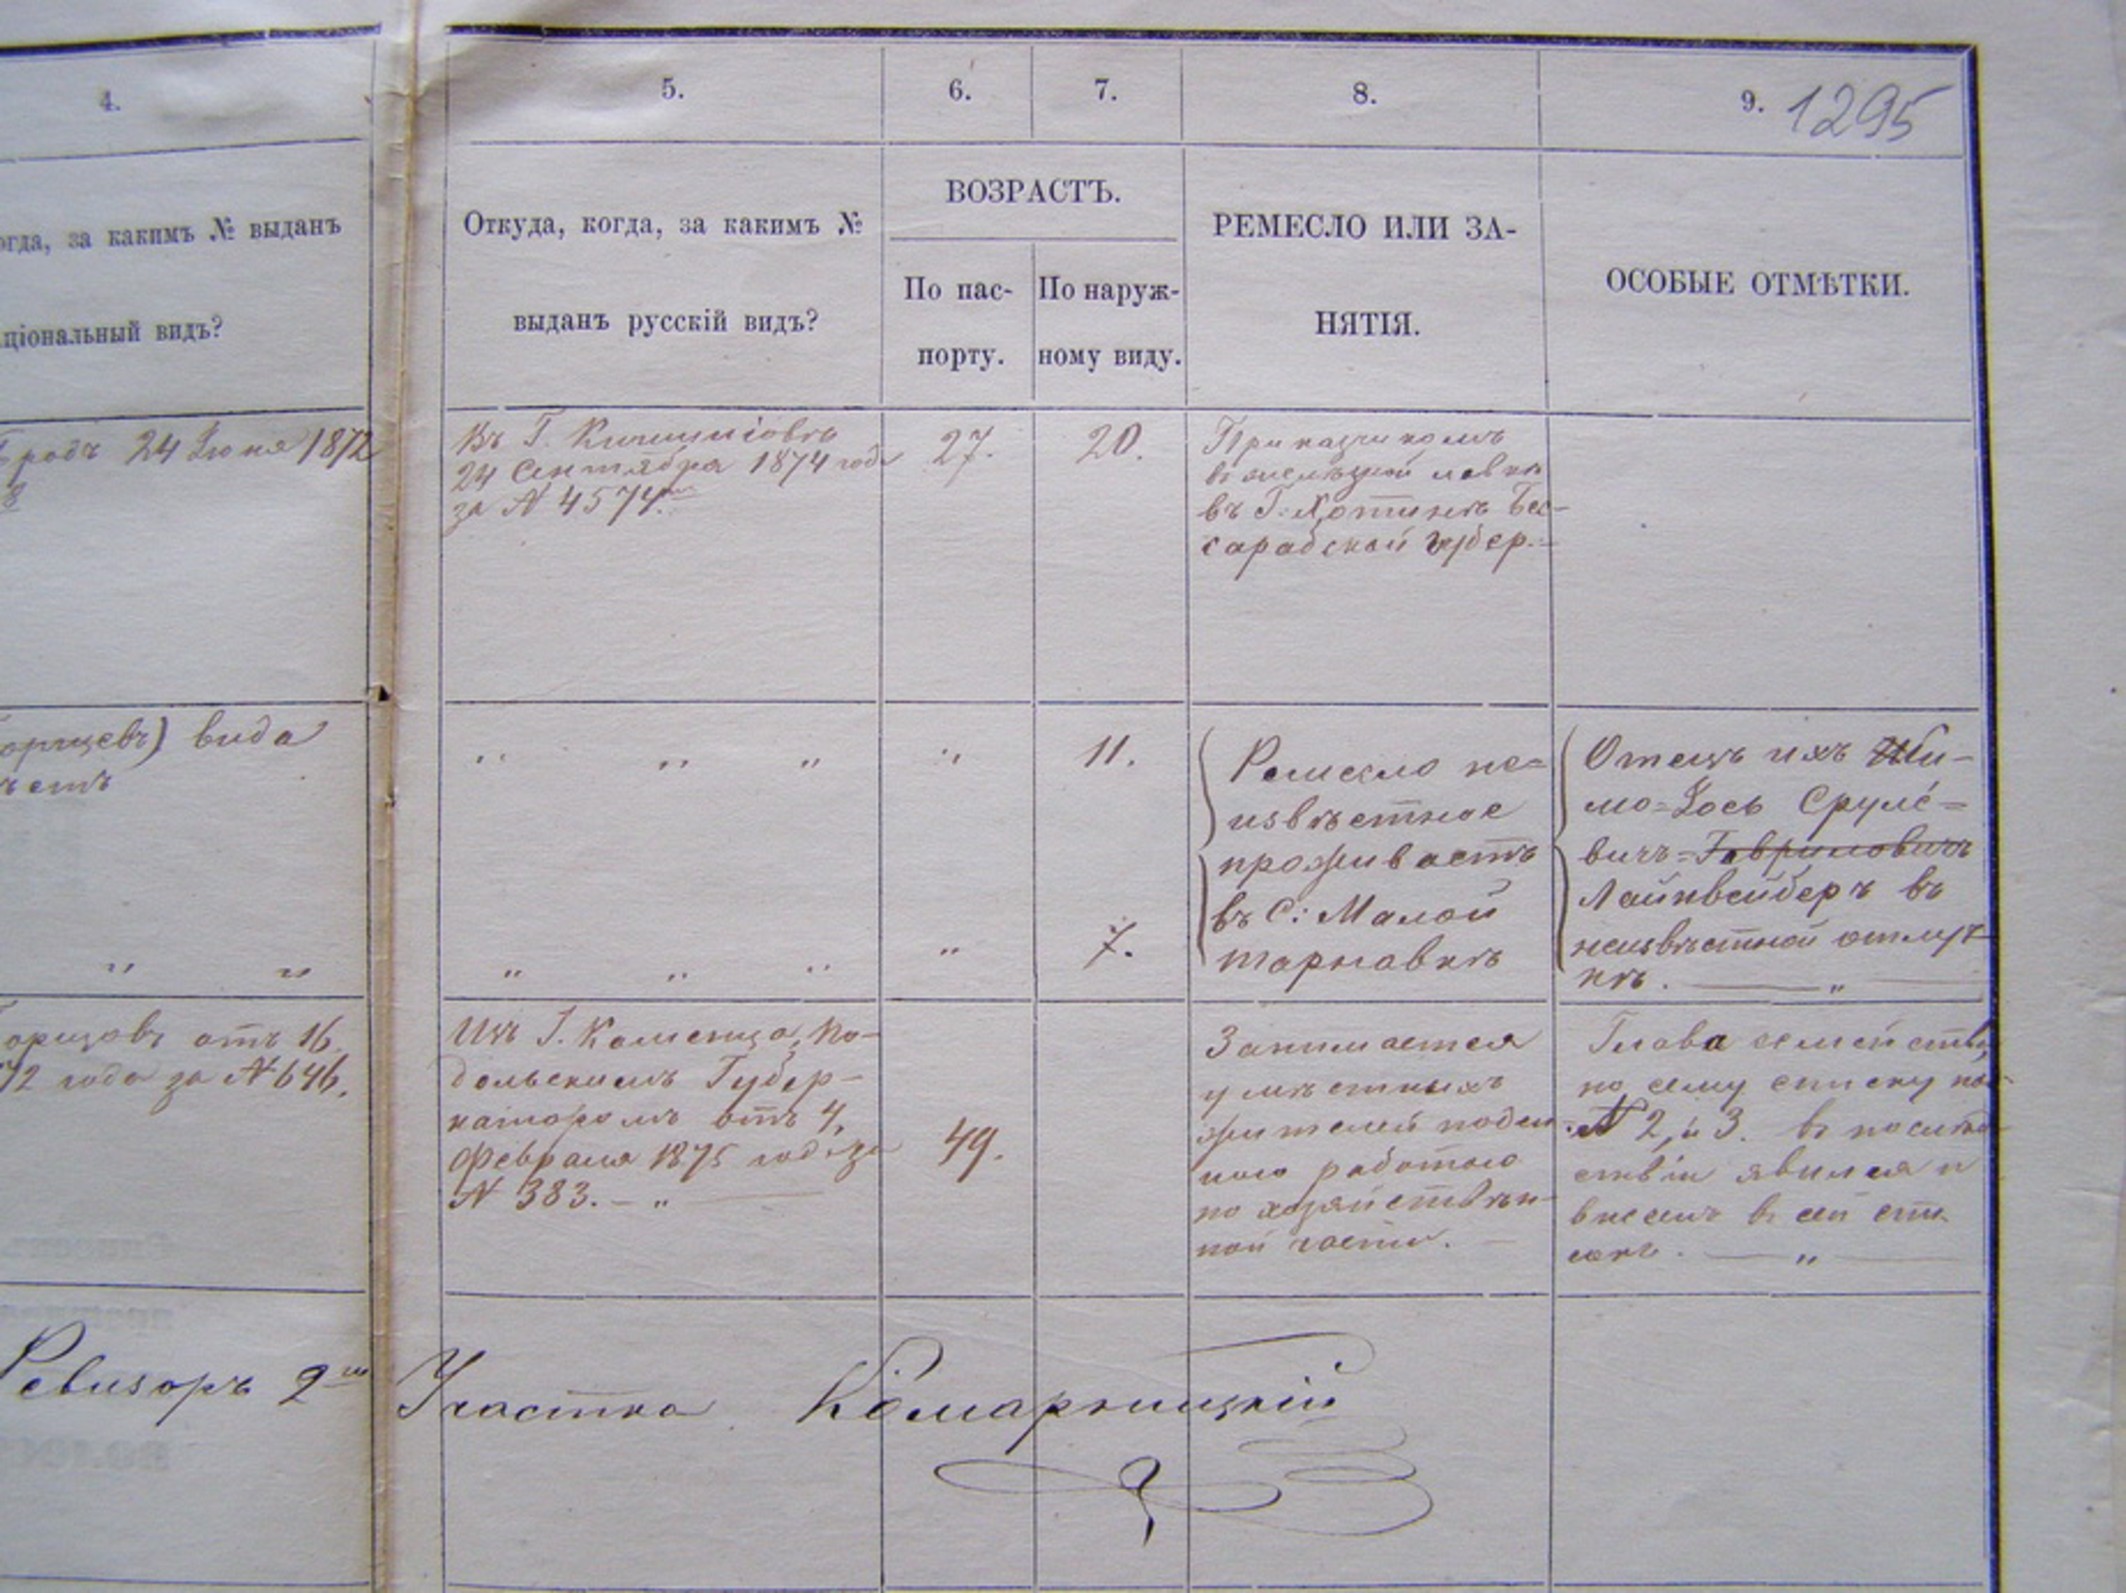 4.
5.
6.
7.
8.
9. 1295
огда, за какимъ № выданъ
ціональный видъ?
Откуда, когда, за какимъ №
выданъ русскій видъ?
ВОЗРАСТЪ.
По пас-
порту.
По наруж-
ному виду.
РЕМЕСЛО ИЛИ ЗА-
НЯТІЯ.
ОСОБЫЕ ОТМѢТКИ.
Бродъ 24 Іюня 1872
8
Въ Г. Кишиніовѣ
24 Сентября 1874 года
за № 4574.
27.
20.
Приказчикомъ
въ желѣзной лавкѣ
въ Г. Хотинѣ Бес-
сарабской губер.
орщевъ) вида
ѣетъ
„ „ „
„
11.
Ремесло не=
извѣстное
проживаетъ
въ С: Малой
тарнавкѣ
Отецъ ихъ Ши-
мо=Іось Сруле=
вичъ=Гавриловичъ
Лайнвейберъ въ
неизвѣстной отлуч-
кѣ. — „ —
„ „
„ „ „
„
7.
орщовъ отъ 16
72 года за № 646.
Изъ Г. Каменца, По-
дольскимъ Губер-
наторомъ отъ 4,
Февраля 1875 года за
№ 383. — „ —
49.
Занимается
у мѣстныхъ
жителей поден
ною работою
по хозяйствѣн-
ной части. —
Глава семейства,
по сему списку по
№ 2, и 3. въ послѣд-
ствіи явился и
внесенъ въ сей спи
сокъ. — „ —
Ревизоръ 2го Участка Комарницкій